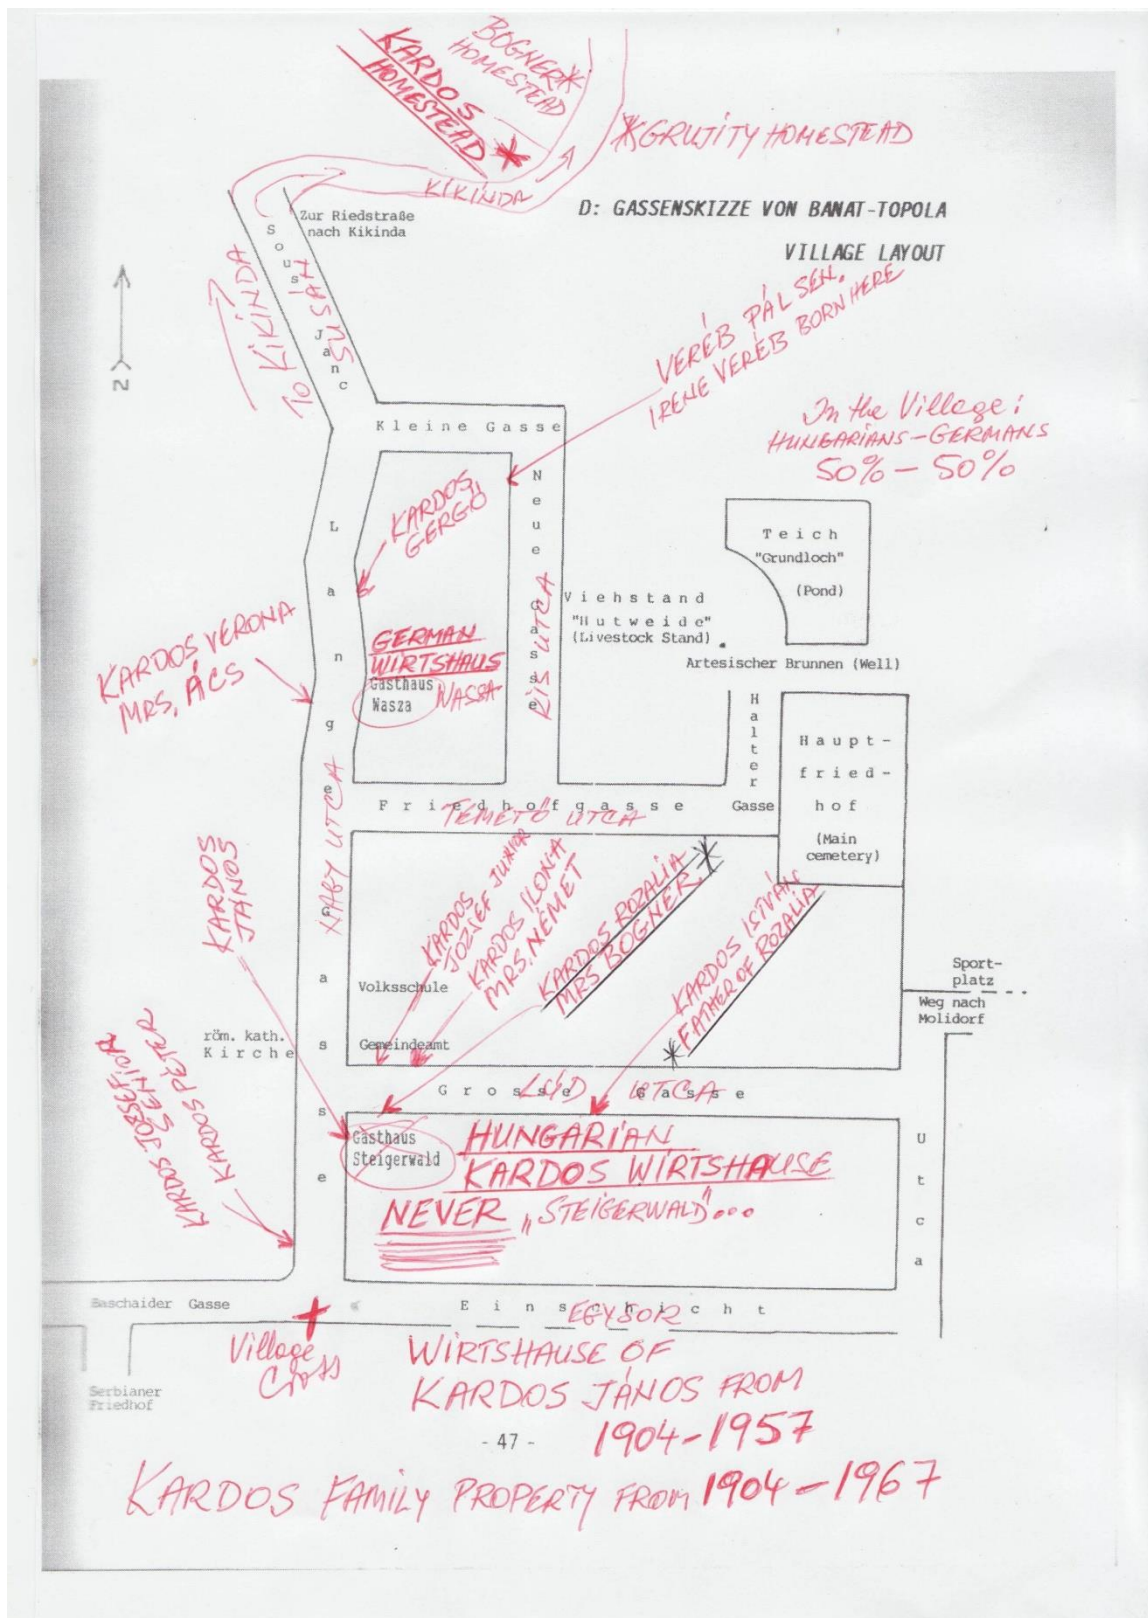 BOGNER
HOMESTEAD
KARDOS
HOMESTEAD
GRUJITY HOMESTEAD
KIKINDA
Zur Riedstraße
nach Kikinda
D: GASSENSKIZZE VON BANAT-TOPOLA
VILLAGE LAYOUT
N
TO KIKINDA
Sous Janc
SUSÁN
VERÉB PÁL SEN.
IRENE VERÉB BORN HERE
In the Village:
HUNGARIANS-GERMANS
50% - 50%
Kleine Gasse
KARDOS
GERGŐ
Neue Gasse
KIS UTCA
Teich
"Grundloch"
(Pond)
Viehstand
"Hutweide"
(Livestock Stand)
Artesischer Brunnen (Well)
KARDOS VERONA
MRS. ÁCS
GERMAN
WIRTSHAUS
Gasthaus
Wasza
WASSA
Lange Gasse
NAGY UTCA
Halter
Gasse
Haupt-
fried-
hof
(Main
cemetery)
Friedhofgasse
TEMETŐ UTCA
KARDOS
JÁNOS
KARDOS
JOZSEF JUNIOR
KARDOS ILONA
MRS. NÉMET
KARDOS ROZALIA
MRS BOGNER
KARDOS ISTVÁN
FATHER OF ROZALIA
Volksschule
Sport-
platz
Weg nach
Molidorf
röm. kath.
Kirche
Gemeindeamt
KARDOS JOZSEF
SENIOR
KARDOS PÉTER
Grosse Gasse
LÚD UTCA
Gasthaus
Steigerwald
HUNGARIAN
KARDOS WIRTSHAUSE
NEVER „STEIGERWALD"...
Utca
Baschaider Gasse
Einschicht
EGYSOR
Village
Cross
Serbianer
Friedhof
WIRTSHAUSE OF
KARDOS JÁNOS FROM
1904-1957
- 47 -
KARDOS FAMILY PROPERTY FROM 1904-1967